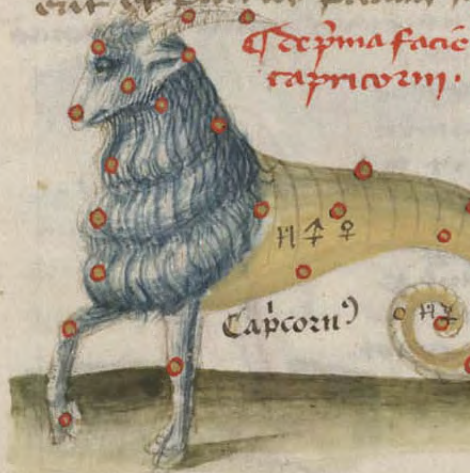 ¶ de p̄ma facie
capricorni .
♄ ♂ ♀
Cap̍cornꝰ
♄ ☿